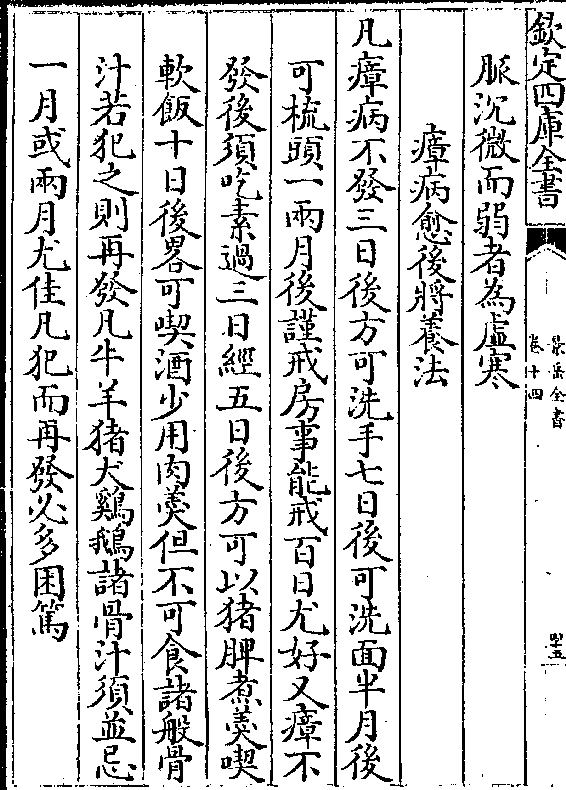 欽定四庫全書
景岳全書
卷十四
脈沉微而弱者為虛寒
瘴病愈後將養法
凡瘴病不發三日後方可洗手七日後可洗面半月後
可梳頭一兩月後謹戒房事能戒百日尤好又瘴不
發後須吃素過三日經五日後方可以猪脾煮羮喫
軟飯十日後畧可喫酒少用肉羮但不可食諸般骨
汁若犯之則再發凡牛羊猪犬鷄鵝諸骨汁須並忌
一月或兩月尤佳凡犯而再發必多困篤